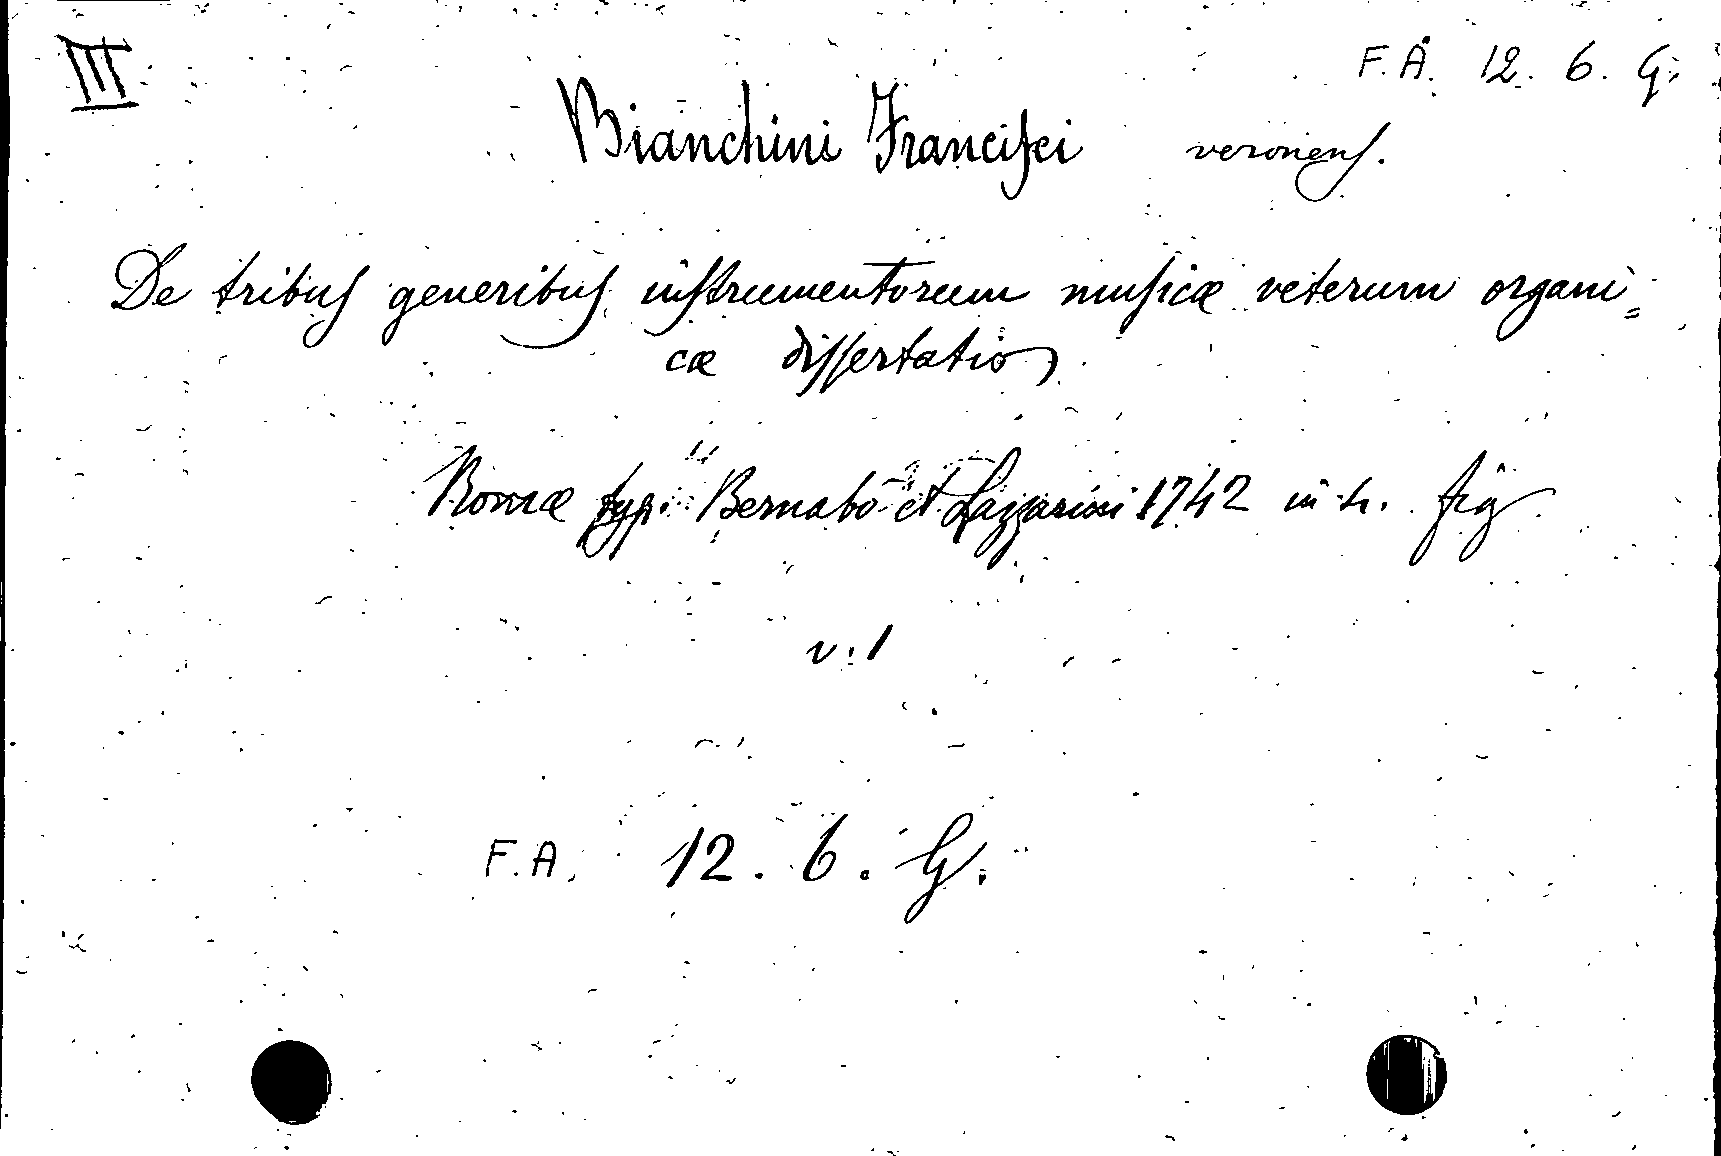 III
F.A. 12. 6. G.
Bianchini Francisci veronens.
De tribus generibus instrumentorum musicæ veterum organi=
cæ dissertatio
Romæ typ. Bernabò et Lazzarini 1742 in 4. fig
v. 1
F.A. 12. 6. G.